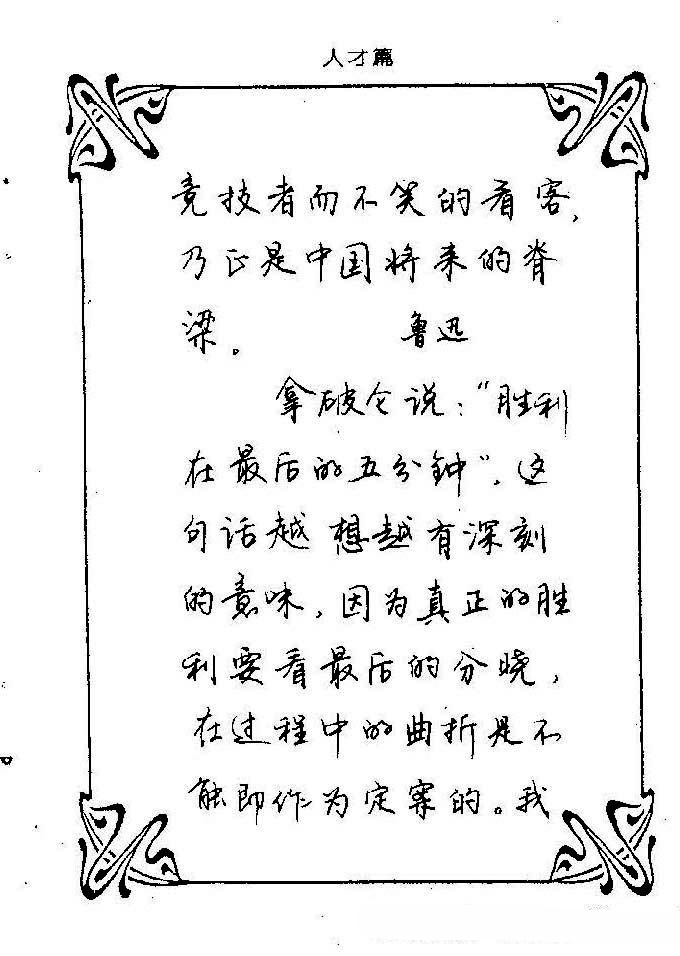 人才篇
竞技者而不笑的看客,
乃正是中国将来的脊
梁。 鲁迅
拿破仑说:“胜利
在最后的五分钟”,这
句话越想越有深刻
的意味,因为真正的胜
利要看最后的分晓,
在过程中的曲折是不
能即作为定案的。我